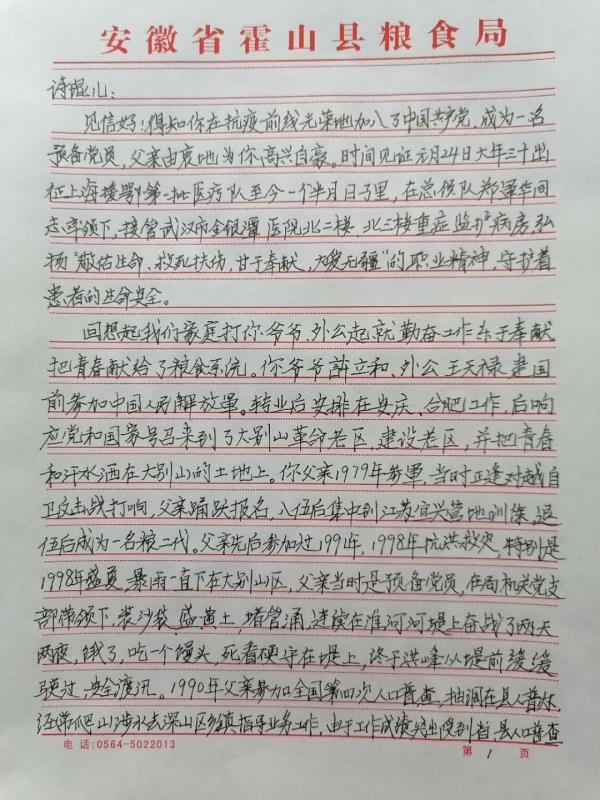 安徽省霍山县粮食局
诗琨儿：
见信好！得知你在抗疫前线光荣地加入了中国共产党，成为一名
预备党员，父亲由衷地为你高兴自豪。时间见证元月24日大年三十出
征上海援鄂第一批医疗队至今一个半月日子里，在总领队郑军华同
志率领下，接管武汉市金银潭医院北二楼、北三楼重症监护病房，弘
扬“敬佑生命、救死扶伤，甘于奉献，大爱无疆”的职业精神，守护着
患者的生命安全。
回想起我们家庭打你爷爷、外公起就勤奋工作乐于奉献
把青春献给了粮食系统。你爷爷 立和、外公王天禄建国
前参加中国人民解放军。转业后安排在安庆、合肥工作，后响
应党和国家号召来到了大别山革命老区，建设老区，并把青春
和汗水洒在大别山的土地上。你父亲1979年参军，当时正逢对越自
卫反击战打响，父亲踊跃报名，入伍后集中到江苏宜兴营地训练，退
伍后成为一名粮二代。父亲先后参加过1991年，1998年抗洪救灾，特别是
1998年盛夏，暴雨一直下在大别山区，父亲当时是预备党员，在局机关党支
部带领下，装沙袋、盛黄土，堵管涌，连续在淮河河堤上奋战了两天
两夜，饿了，吃一个馒头，死看硬守在堤上，终于洪峰从堤前缓缓
驶过，安全渡汛。1990年父亲参加全国第四次人口普查，抽调在县人普办，
经常爬山涉水去深山区乡镇指导业务工作，由于工作成绩突出受到省、县人口普查
电话:0564-5022013
第 1 页